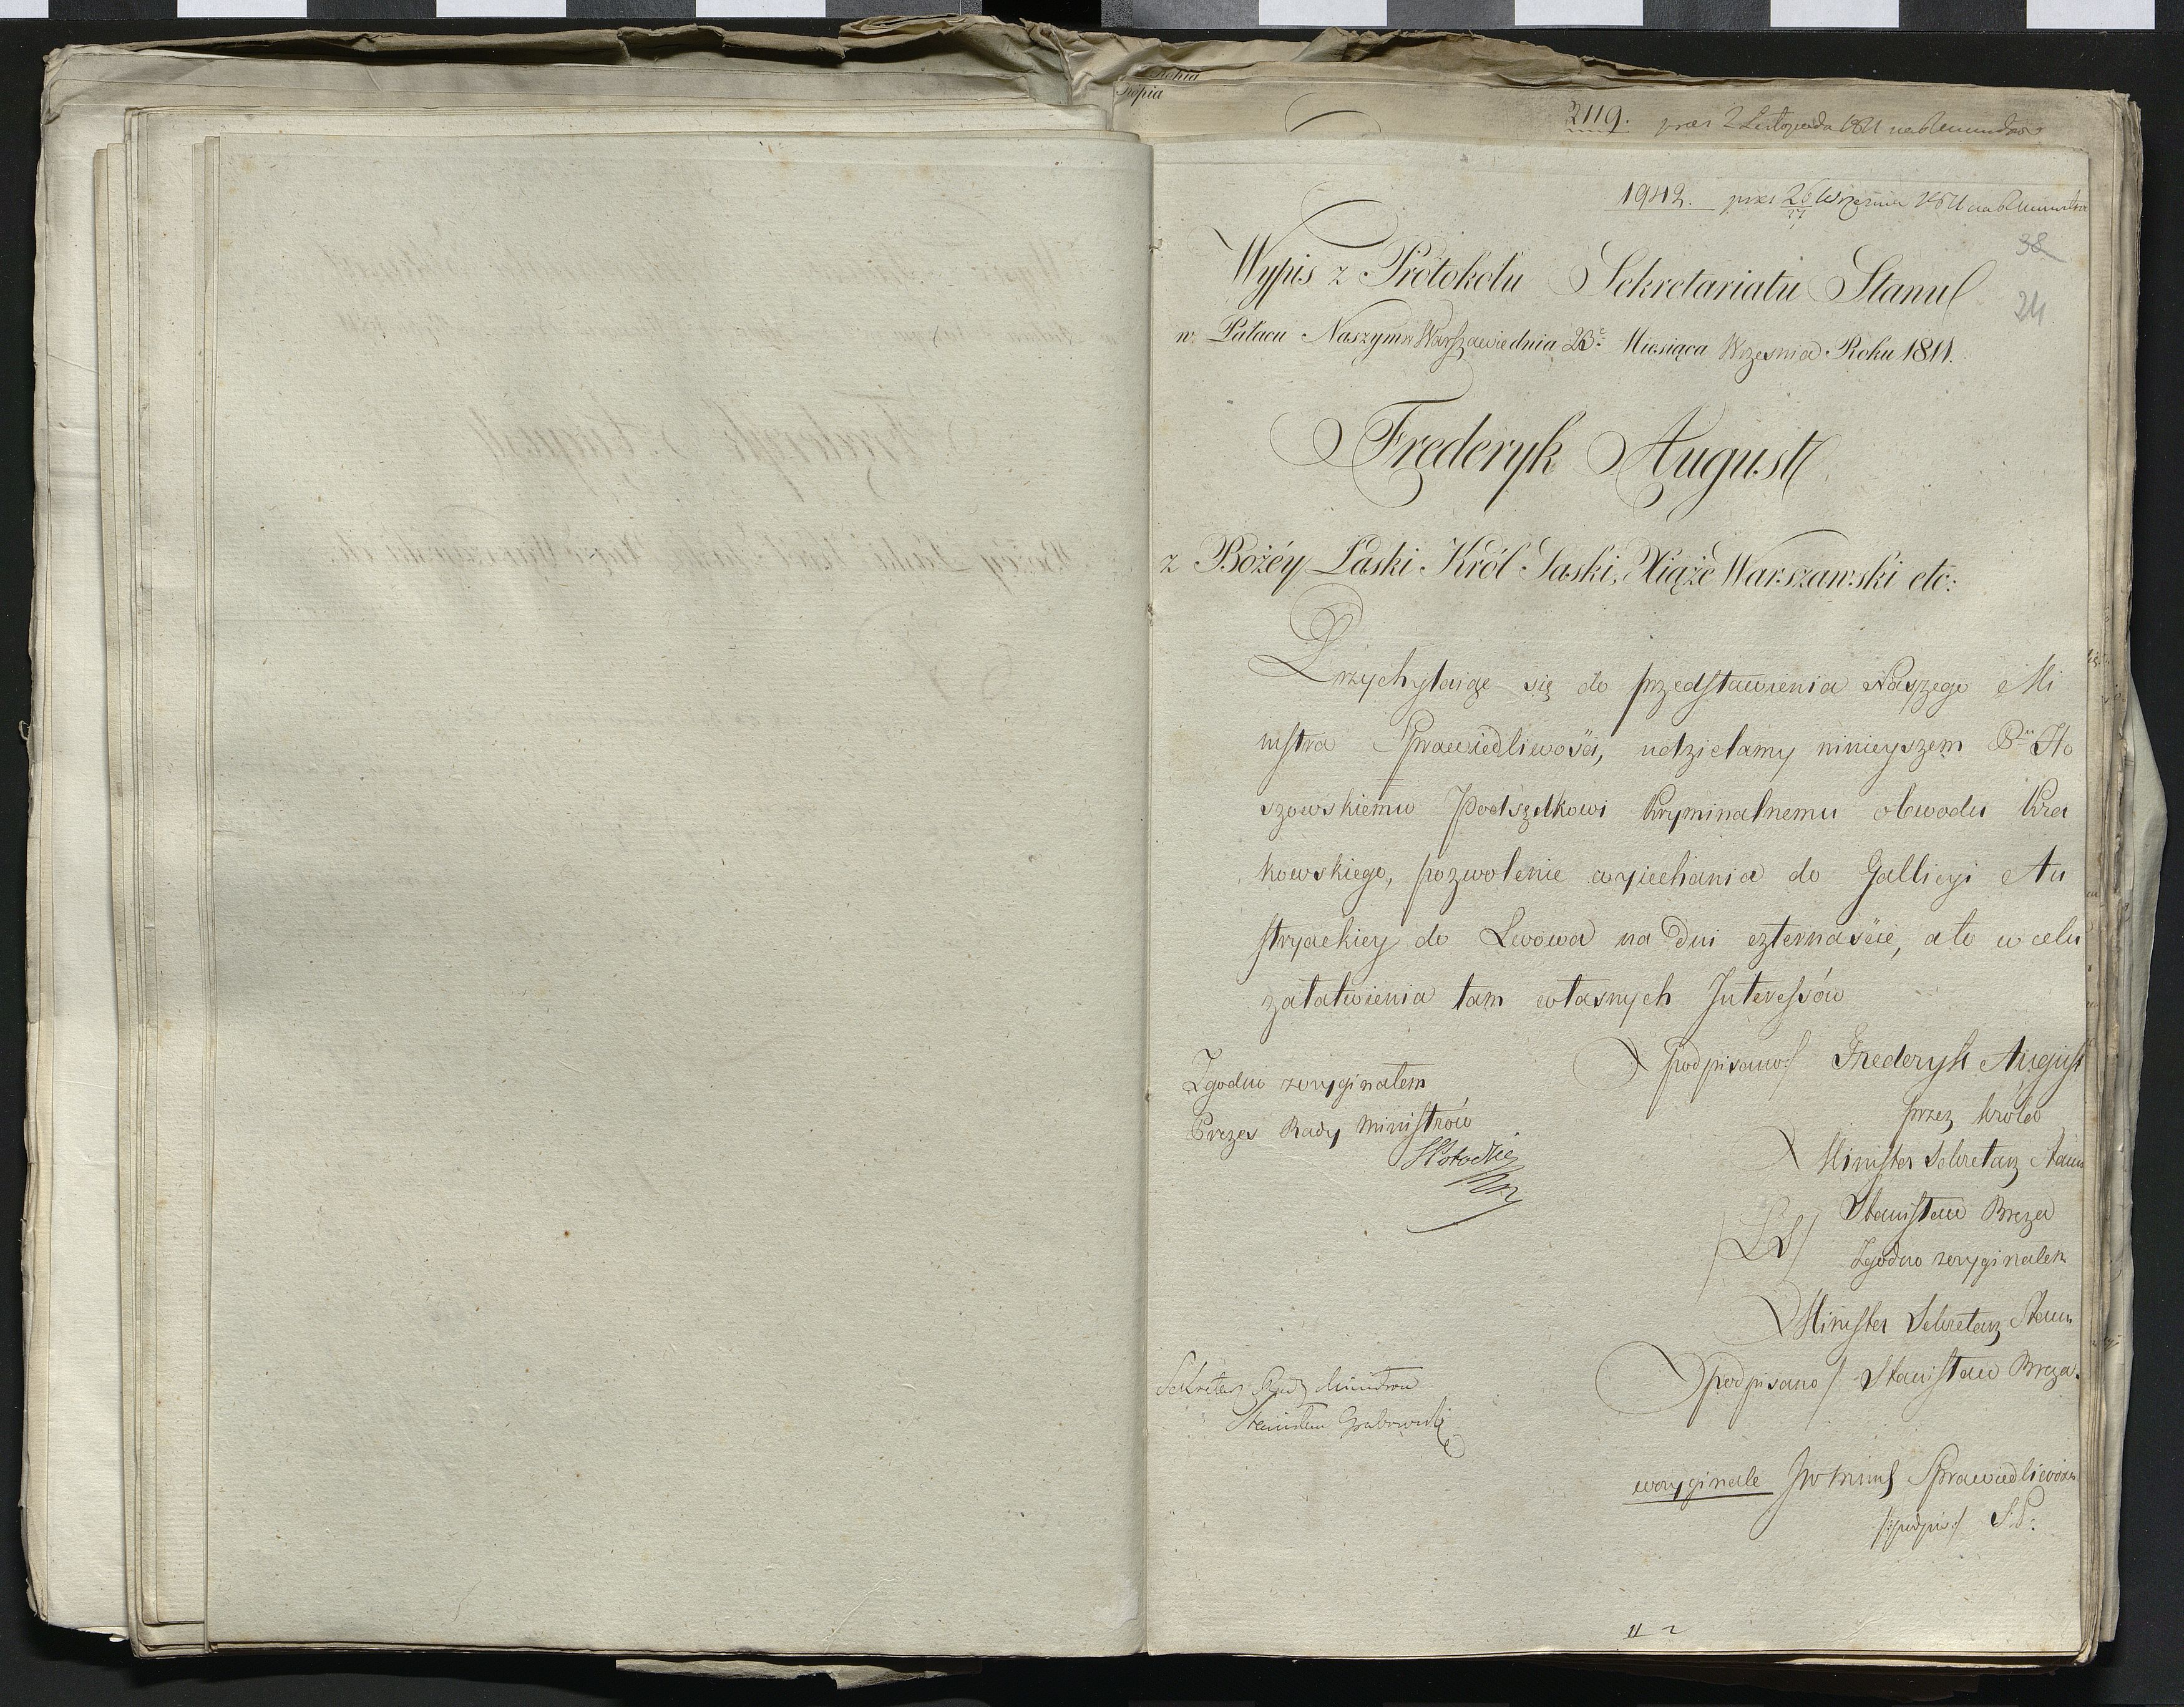 Kopia
2119. prez 2 Listopada 1811
1942. prez 26 Września 1811
38
24
Wypis z Protokołu Sekretariatu Stanu
w Pałacu Naszym w Warszawie dnia 23º Miesiąca Września Roku 1811.
Frederyk August
z Bożéy Łaski Król Saski, Xiąże Warszawski etc:
Przychylaiąc się do przedstawienia Naszego Mi
nistra Sprawiedliwości, udzielamy ninieyszem Pu Ho
szowskiemu Podsędkowi Kryminalnemu obwodu Kra
kowskiego, pozwolenie wyiechania do Gallicyi Au
stryackiey do Lwowa na Dni czternaście, a to w celu
załatwienia tam własnych Interessów
podpisano/ Frederyk August
Zgodno z oryginałem
przez Króla
Prezes Rady Ministrów
Minister Sekretarz Stanu
SPotocki
Stanisław Breza
/LS/
Zgodno z oryginałem
Minister Sekretarz Stanu
podpisano/ Stanisław Breza.
Sekretarz Rady Ministrów
Stanisław Grabowski
w oryginale JW Minis Sprawiedliwości
/:podpis:/ S.P: